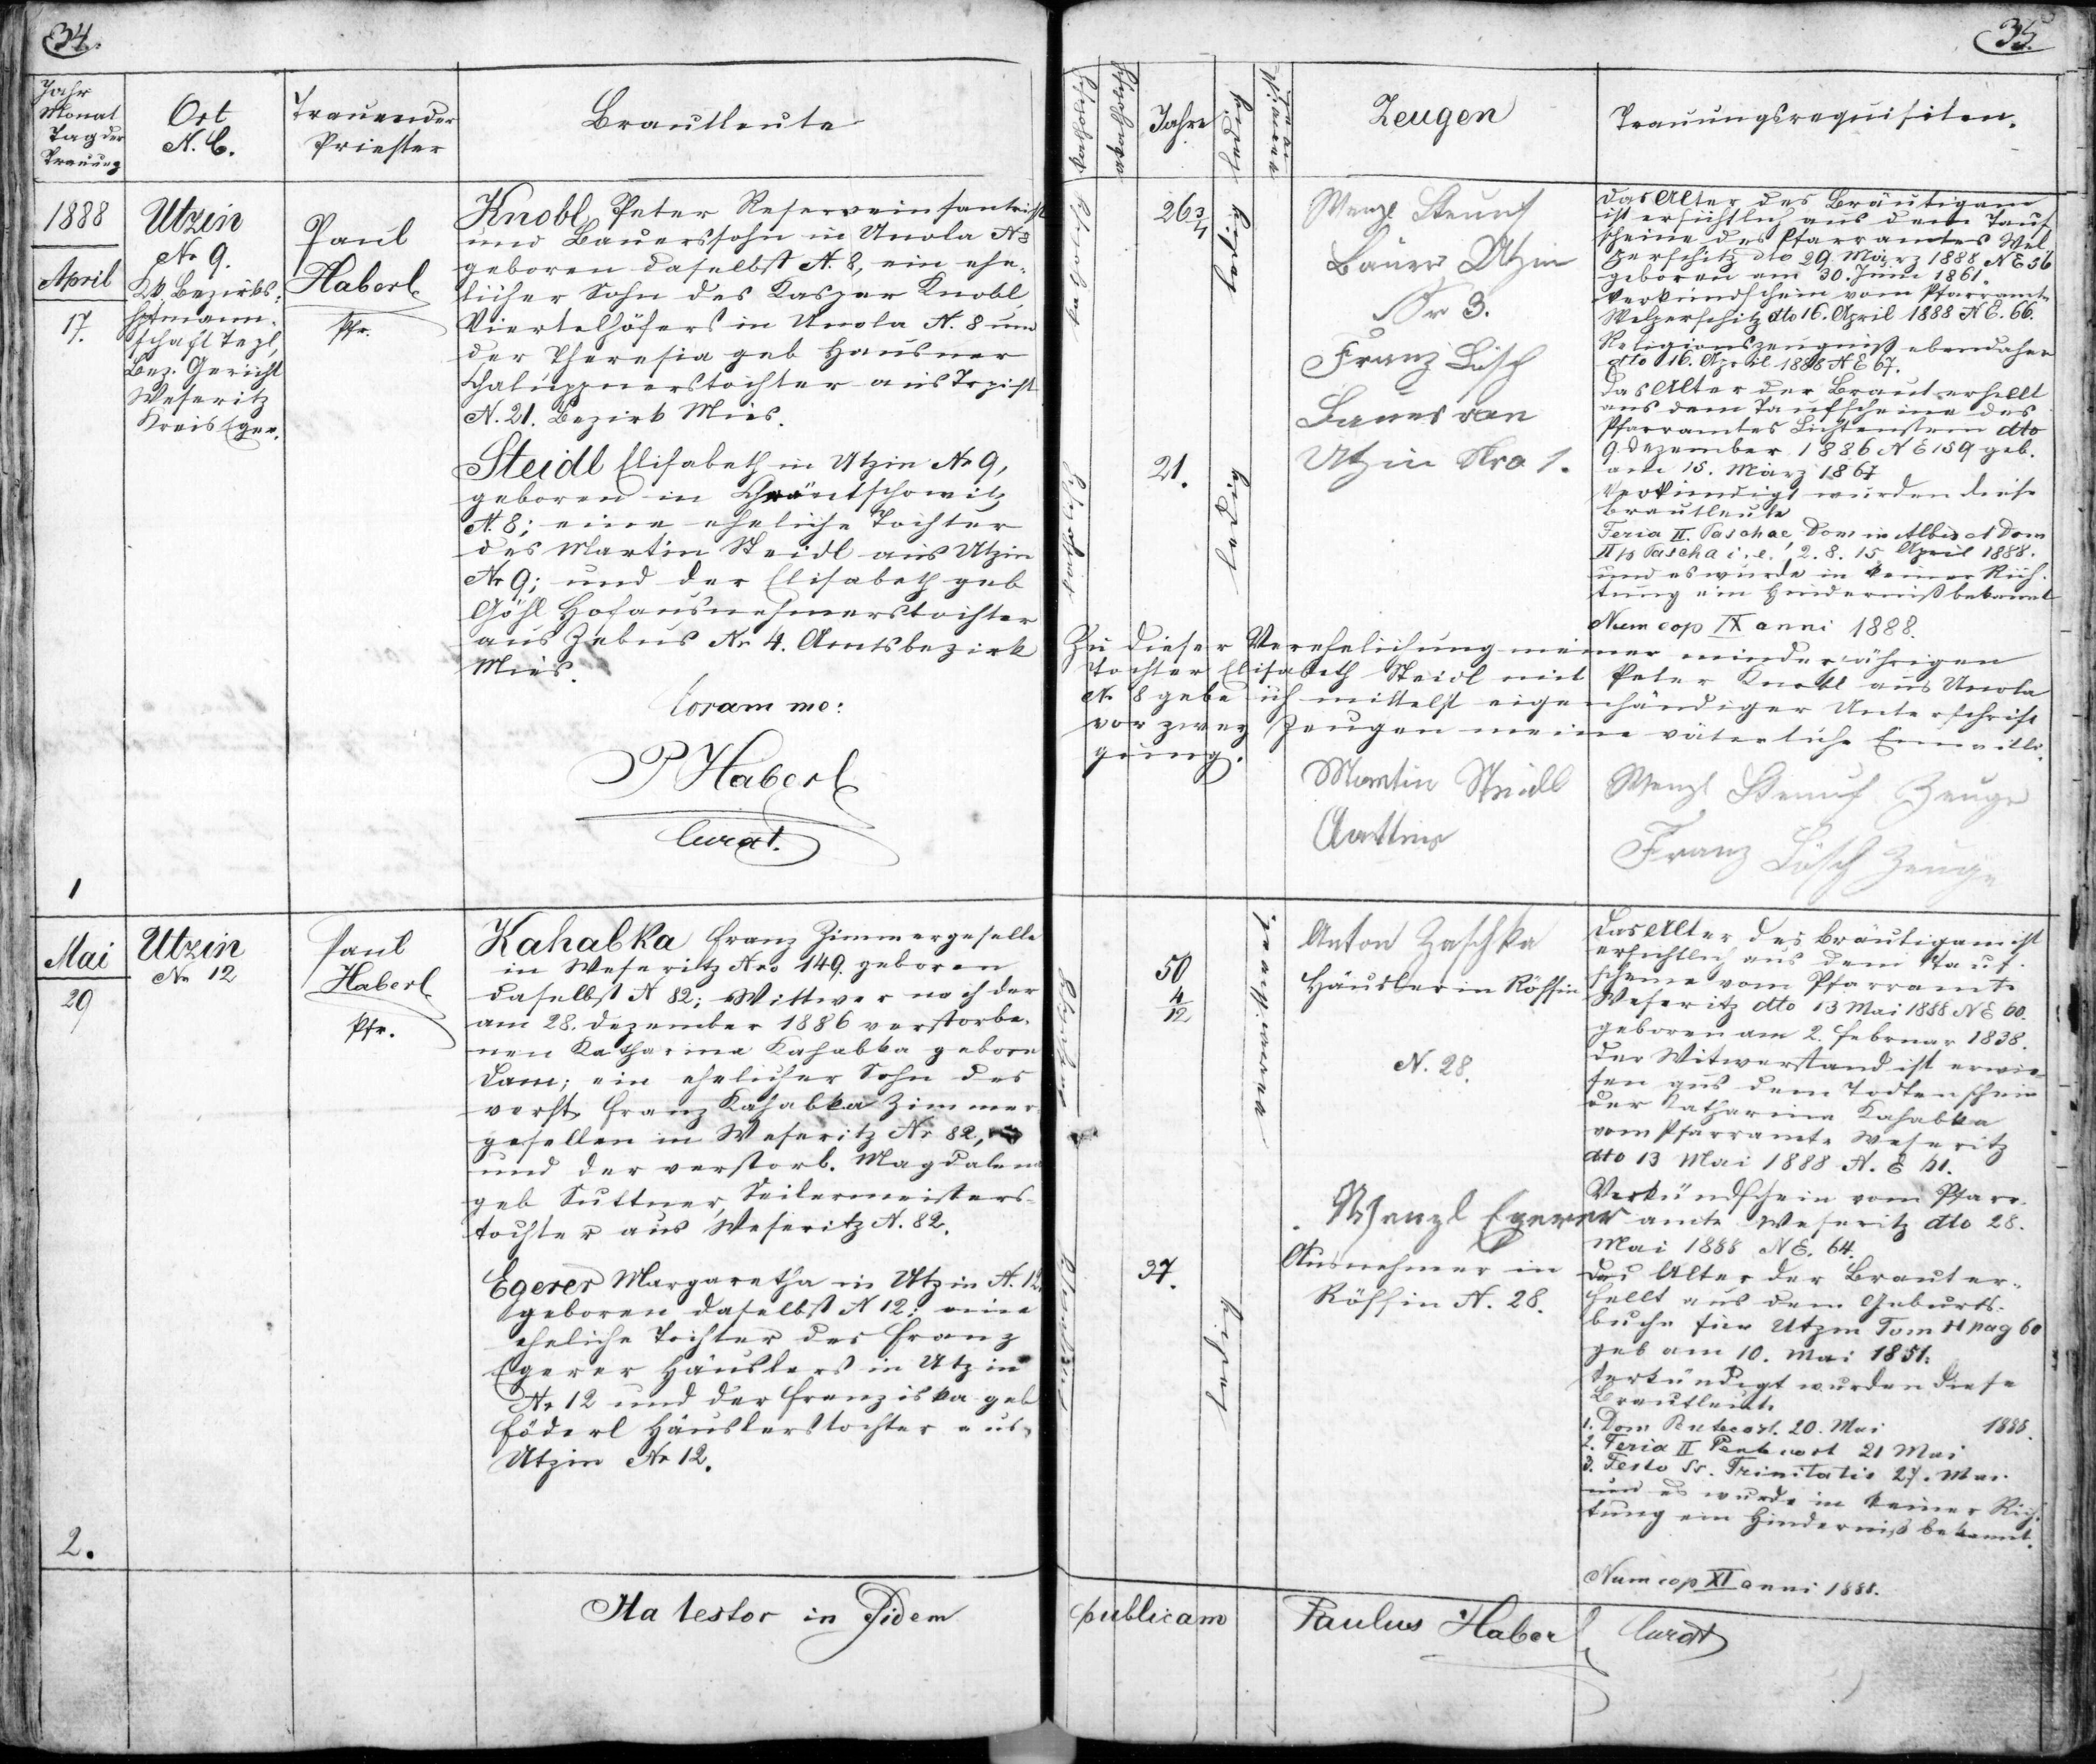 34.
Jahr
Monat
Tag der
Trauung
Ort
N. C.
Trauender
Priester
Brautleute
1888
April
17.
Utzin
Nr 9.
Kk Bezirks-
hptmann-
schaft Tepl,
Bez. Gericht
Weseritz
Kreis Eger.
Paul
Haberl
Pfr.
Knobl Peter Reserveinfantrist
und Bauerssohn in Unola N 8
geboren daselbst N. 8, ein ehe-
licher Sohn des Kaspar Knobl
Viertelhöfers in Unola N. 8 und
der Theresia geb Hausner
Chaluppnerstochter aus Trpist
N. 21. Bezirk Mies.
Steidl Elisabeth in Utzin Nr 9,
geboren in
N. 8; eine eheliche Tochter
des Martin Steidl aus Utzin
Nr 9; und der Elisabeth geb
Göhl Hofausnehmerstochter
aus Zebus Nr 4. Amtsbezirk
Mies.
Coram me:
P Haberl
Curat.
1
Mai
29
Utzin
Nr 12
Paul
Haberl
Pfr.
Kahabka Franz Zimmergeselle
in Weseritz Nro 149. geboren
daselbst N 82; Wittwer nach der
am 28. Dezember 1886 verstorbe-
nen Katharina Kahabka geborn
Dam; ein ehelicher Sohn des
verst. Franz Kahabka Zimmer-
gesellen in Weseritz Nr 82,
und der verstorb. Magdalena
geb Suttner, Seilermeisters-
tochter aus Weseritz N. 82.
Egerer Margaretha in Utzin N. 12.
geboren daselbst N 12; eine
eheliche Tochter des Franz
Egerer Häuslers in Utzin
Nr 12 und der Franziska geb
Föderl Häuslerstochter aus
Utzin Nr 12.
2.
Ita testor in Fidem
35.
Jahre
Zeugen
Trauungsrequisiten.
26 3/4
ledig
21.
ledig
Wenzl Steunf
Bauer Utzin
Nr 3.
Franz Lösch
Bauer von
Utzin Nro 1.
Das Alter des Bräutigam
ist ersichtlich aus dem Tauf
scheine des Pfarramtes Wel-
perschitz dto 29. März 1888 NE 56
geboren am 30. Juni 1861.
Verkündschein vom Pfarramte
Welperschitz dto 16. April 1888 N E. 66.
Religionszeugniß ebendaher
dto 16. April 1888 N E 67.
Das Alter der Braut erhellt
aus dem Taufscheine des
Pfarramtes Lichtenstein dto
9. Dezember 1886 N E 159 geb.
am 15. März 1867
Verkündigt wurden diese
Brautleute
Feria II. Paschae, Dom in Albis et Dom
II p Pascha i. e. 2. 8. 15 April 1888.
und es wurde in keiner Rich-
tung ein Hinderniß bekannt
Num cop IX anni 1888.
Zu dieser Verehelichung meiner minderjährigen
Tochter Elisabeth Steidl mit Peter Knobl aus Unola
N. 8 gebe ich mittelst eigenhändiger Unterschrift
vor zwey Zeugen meine väterliche Einwilli-
gung.
Martin Steidl
Wenzl Steunf Zeuge
Franz Lösch Zeuge
50
4/12
verwittwet
37.
ledig
Anton Zaschka
Häusler in Röffin
N. 28.
Wenzl Egerer
Ausnehmer in
Röffin N. 28.
Das Alter des Bräutigam ist
ersichtlich aus dem Tauf-
scheine vom Pfarramte
Weseritz dto 13 Mai 1888 N E 60.
geboren am 2. Februar 1838.
Der Witwerstand ist erwie-
sen aus dem Todtenschein
der Katharina Kahabka
vom Pfarramte Weseritz
dto 13 Mai 1888 N. E 61.
Verkündschein vom Pfarr-
amte Weseritz dto 28.
Mai 1888 N E. 64.
Das Alter der Braut er-
hellt aus dem Geburts-
buche für Utzin Tom II pag 60
geb am 10. Mai 1851.
Verkündigt wurden diese
Brautleute
1. Dom Pentecost. 20. Mai 1888.
2. Feria II Pentecost 21 Mai
3. Festo SS. Trinitatis 27. Mai
und es wurde in keiner Rich-
tung ein Hinderniß bekannt.
Num cop XI anni 1888.
publicam Paulus Haberl Curat